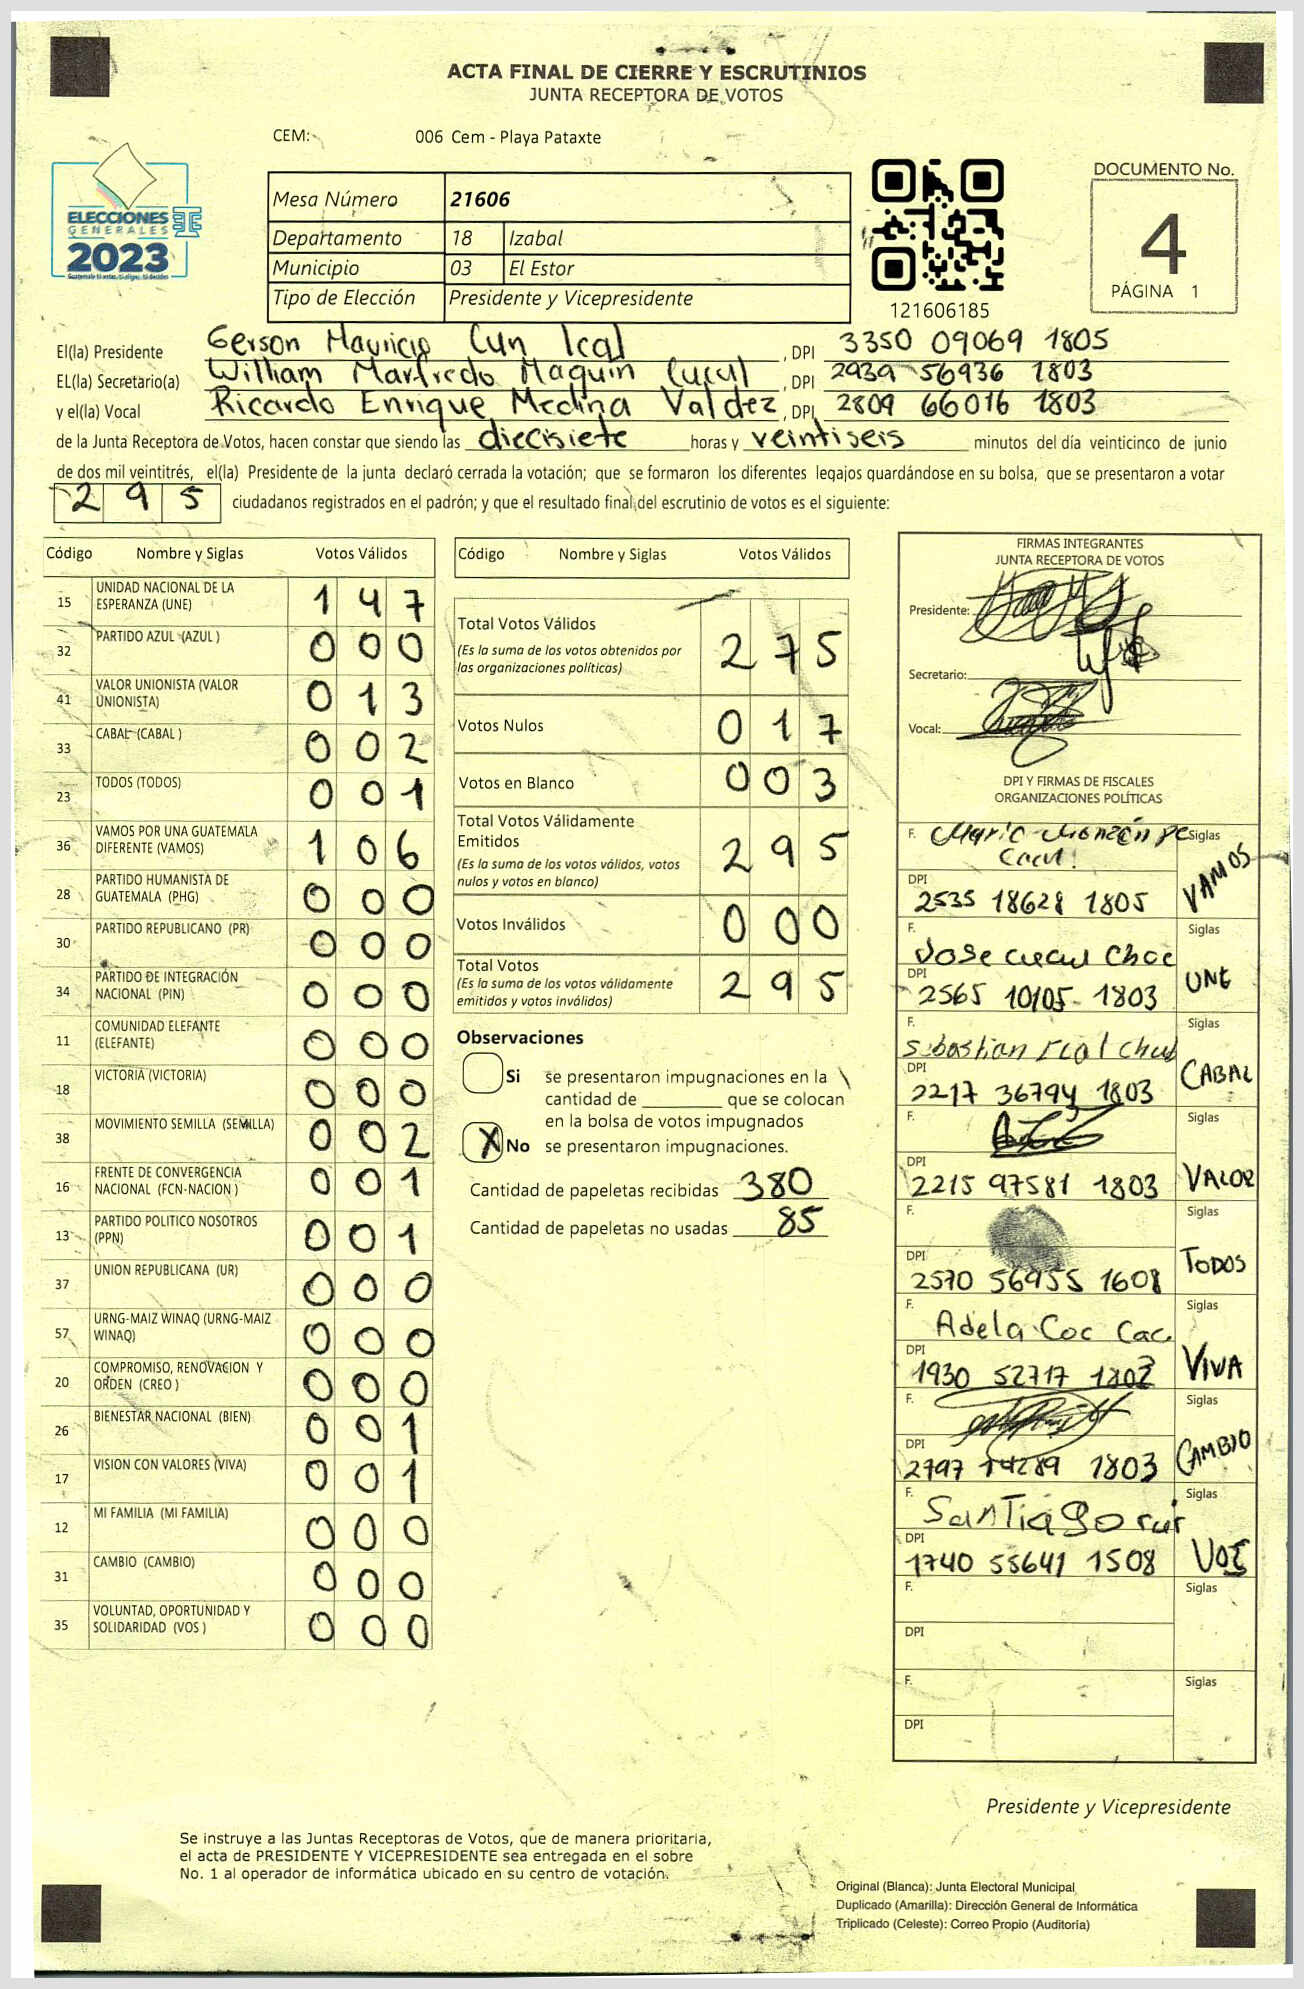 ACTA FINAL DE CIERRE Y ESCRUTINIOS
JUNTA RECEPTORA DE VOTOS
CEM: 006 Cem - Playa Pataxte
ELECCIONES
GENERALES
2023
Mesa Número 21606
Departamento 18 Izabal
Municipio 03 El Estor
Tipo de Elección Presidente y Vicepresidente
121606185
DOCUMENTO No.
4
PÁGINA 1
El(la) Presidente Gerson Mauricio Cun Ical, DPI 3350 09069 1805
EL(la) Secretario(a) William Marfredo Maquin Cucul, DPI 2939 56936 1803
y el(la) Vocal Ricardo Enrique Medina Valdez, DPI 2809 66016 1803
de la Junta Receptora de Votos, hacen constar que siendo las diecisiete horas y veintiseis minutos del día veinticinco de junio
de dos mil veintitrés, el(la) Presidente de la junta declaró cerrada la votación; que se formaron los diferentes legajos guardándose en su bolsa, que se presentaron a votar
2 9 5 ciudadanos registrados en el padrón; y que el resultado final del escrutinio de votos es el siguiente:
Código Nombre y Siglas Votos Válidos
15 UNIDAD NACIONAL DE LA ESPERANZA (UNE) 1 4 7
32 PARTIDO AZUL (AZUL ) 0 0 0
41 VALOR UNIONISTA (VALOR UNIONISTA) 0 1 3
33 CABAL (CABAL ) 0 0 2
23 TODOS (TODOS) 0 0 1
36 VAMOS POR UNA GUATEMALA DIFERENTE (VAMOS) 1 0 6
28 PARTIDO HUMANISTA DE GUATEMALA (PHG) 0 0 0
30 PARTIDO REPUBLICANO (PR) 0 0 0
34 PARTIDO DE INTEGRACIÓN NACIONAL (PIN) 0 0 0
11 COMUNIDAD ELEFANTE (ELEFANTE) 0 0 0
18 VICTORIA (VICTORIA) 0 0 0
38 MOVIMIENTO SEMILLA (SEMILLA) 0 0 2
16 FRENTE DE CONVERGENCIA NACIONAL (FCN-NACION ) 0 0 1
13 PARTIDO POLITICO NOSOTROS (PPN) 0 0 1
37 UNION REPUBLICANA (UR) 0 0 0
57 URNG-MAIZ WINAQ (URNG-MAIZ WINAQ) 0 0 0
20 COMPROMISO, RENOVACION Y ORDEN (CREO ) 0 0 0
26 BIENESTAR NACIONAL (BIEN) 0 0 1
17 VISION CON VALORES (VIVA) 0 0 1
12 MI FAMILIA (MI FAMILIA) 0 0 0
31 CAMBIO (CAMBIO) 0 0 0
35 VOLUNTAD, OPORTUNIDAD Y SOLIDARIDAD (VOS ) 0 0 0
Código Nombre y Siglas Votos Válidos
Total Votos Válidos
(Es la suma de los votos obtenidos por
las organizaciones políticas) 2 7 5
Votos Nulos 0 1 7
Votos en Blanco 0 0 3
Total Votos Válidamente
Emitidos
(Es la suma de los votos válidos, votos
nulos y votos en blanco) 2 9 5
Votos Inválidos 0 0 0
Total Votos
(Es la suma de los votos válidamente
emitidos y votos inválidos) 2 9 5
Observaciones
Si se presentaron impugnaciones en la
cantidad de ________ que se colocan
en la bolsa de votos impugnados
X No se presentaron impugnaciones.
Cantidad de papeletas recibidas 380
Cantidad de papeletas no usadas 85
FIRMAS INTEGRANTES
JUNTA RECEPTORA DE VOTOS
Presidente:
Secretario:
Vocal:
DPI Y FIRMAS DE FISCALES
ORGANIZACIONES POLÍTICAS
F. Mario Siglas
DPI 2535 18628 1805 VAMOS
F. Jose cucul Choc Siglas
DPI 2565 10105 1803 UNE
F. Sebastian Chub Siglas
DPI 2217 36794 1803 CABAL
F. Siglas
DPI 2215 97581 1803 VALOR
F. Siglas
DPI 2570 56955 1608 TODOS
F. Adela Coc Cac Siglas
DPI 1930 52717 VIVA
F. Siglas
DPI 2797 14289 1803 CAMBIO
F. Santiago Siglas
DPI 1740 55641 1508 VOS
F. Siglas
DPI
F. Siglas
DPI
Presidente y Vicepresidente
Se instruye a las Juntas Receptoras de Votos, que de manera prioritaria,
el acta de PRESIDENTE Y VICEPRESIDENTE sea entregada en el sobre
No. 1 al operador de informática ubicado en su centro de votación.
Original (Blanca): Junta Electoral Municipal
Duplicado (Amarilla): Dirección General de Informática
Triplicado (Celeste): Correo Propio (Auditoría)